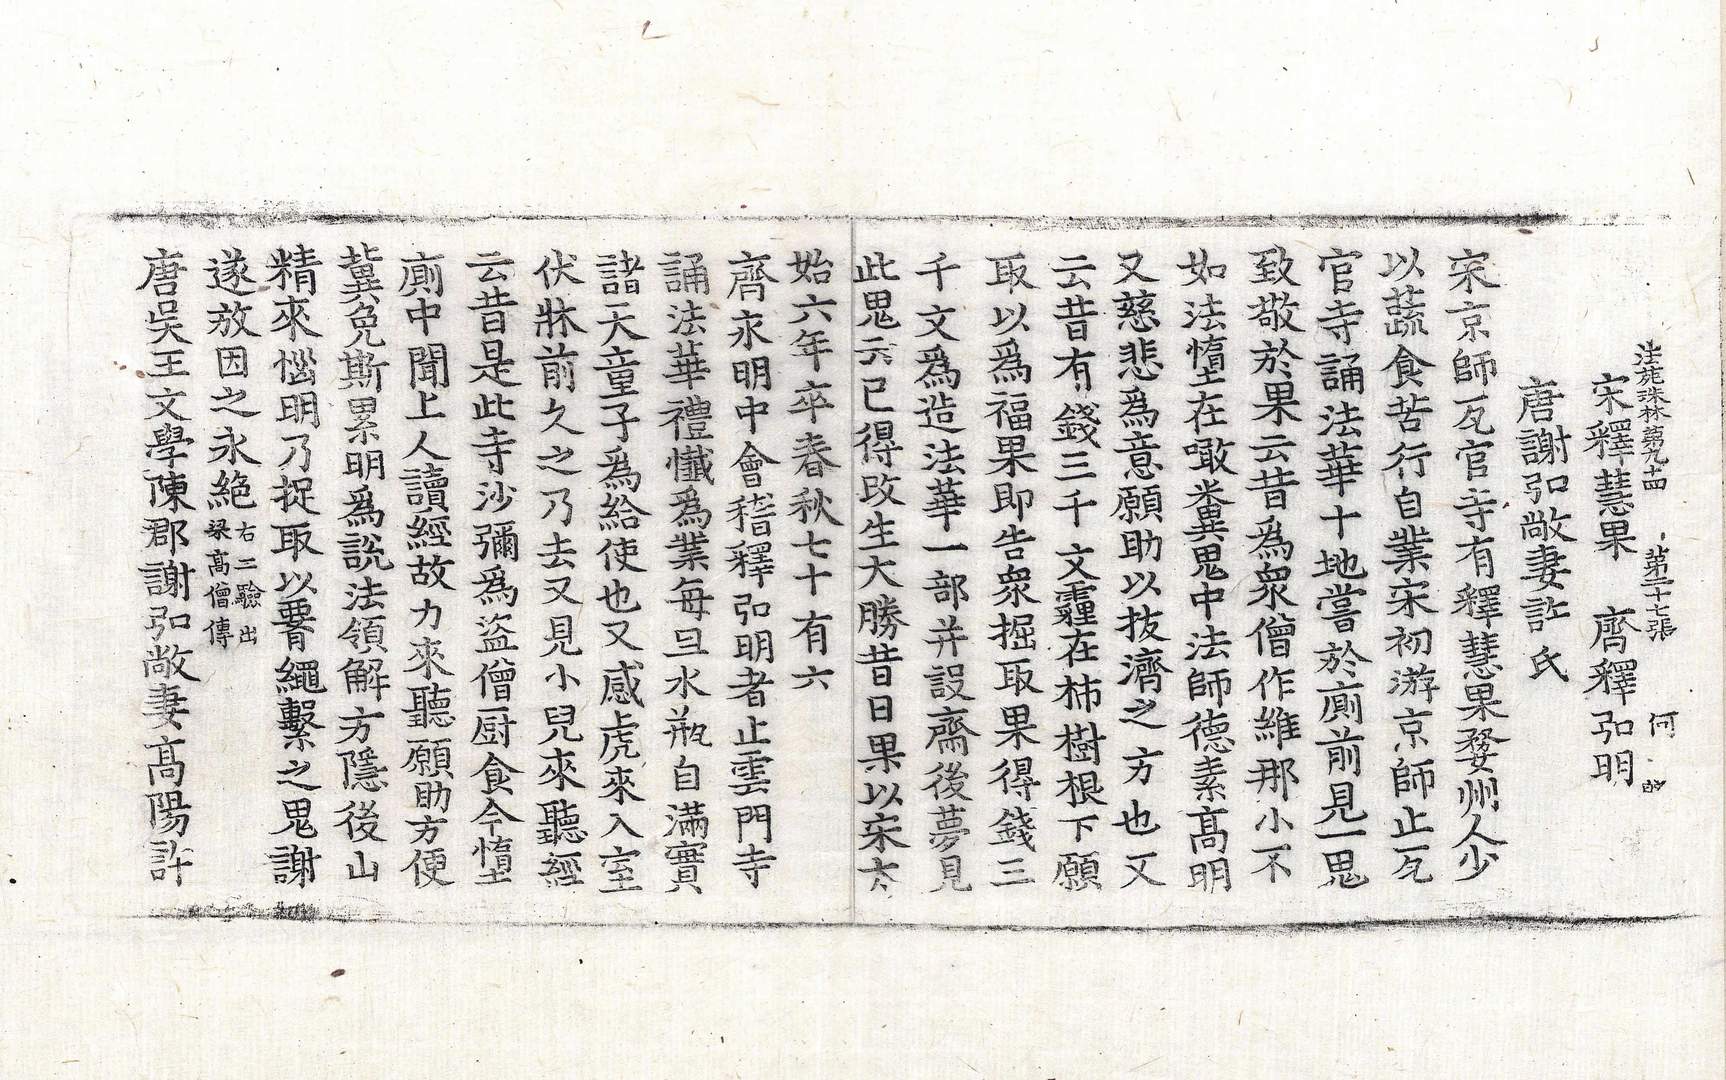 法苑珠林苐九十四　苐二十七張　何　的
宋釋慧果　齊釋弘明
唐謝弘敞妻許氏
宋京師瓦官寺有釋慧果婺州人少
以蔬食苦行自業宋初游京師止瓦
官寺誦法華十地嘗於廁前見一鬼
致敬於果云昔爲衆僧作維那小不
如法墮在噉糞鬼中法師德素髙明
又慈悲爲意願助以拔濟之方也又
云昔有錢三千文霾在柿樹根下願
取以爲福果即告衆掘取果得錢三
千文爲造法華一部并設齋後夢見
此鬼云已得改生大勝昔日果以宋太
始六年卒春秋七十有六
齊永明中會稽釋弘明者止雲門寺
誦法華禮懺爲業每旦水瓶自滿實
諸天童子爲給使也又感虎來入室
伏牀前久之乃去又見小兒來聽經
云昔是此寺沙彌爲盜僧厨食今墮
廁中聞上人讀經故力來聽願助方便
冀免斯累明爲說法領解方隱後山
精來惱明乃捉取以腰繩繫之鬼謝
遂放因之永絶右二驗出梁髙僧傳
唐吳王文學陳郡謝弘敞妻髙陽許